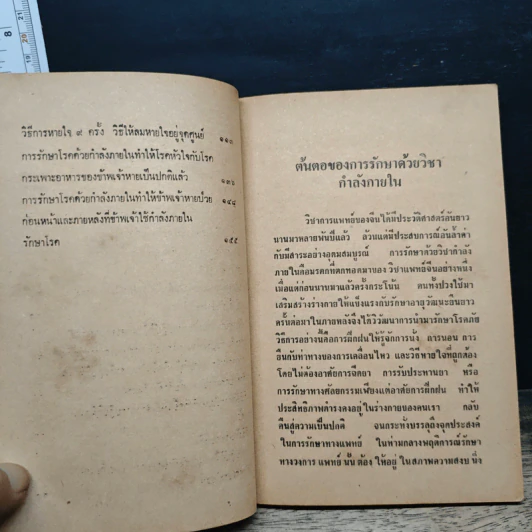 วิธีการหายใจ ๙ ครั้ง วิธีให้ลมหายใจอยู่จุดศูนย์ ๑๑๓
การรักษาโรคด้วยกำลังภายในทำให้โรคหัวใจกับโรค
กระเพาะอาหารของข้าพเจ้าหายเป็นปกติแล้ว ๑๓๖
การรักษาโรคด้วยกำลังภายในทำให้ข้าพเจ้าหายป่วย ๑๔๘
ก่อนหน้าและภายหลังที่ข้าพเจ้าใช้กำลังภายใน
รักษาโรค ๑๕๕
ต้นตอของการรักษาด้วยวิชา
กำลังภายใน
วิชาการแพทย์ของจีนได้มีประวัติศาสตร์อันยาว
นานมาหลายพันปีแล้ว ล้วนแต่มีประสบการณ์อันล้ำค่า
กับมีสาระอย่างอุดมสมบูรณ์ การรักษาด้วยวิชากำลัง
ภายในคือมรดกที่ตกทอดมาของ วิชาแพทย์จีนอย่างหนึ่ง
เมื่อแต่ก่อนนานมาแล้วครั้งกระโน้น คนทั้งปวงใช้มา
เสริมสร้างร่างกายให้แข็งแรงกับรักษาอายุวัฒนะยืนยาว
ครั้นต่อมาในภายหลังจึงได้วิวัฒนาการนำมารักษาโรคภัย
วิธีการอย่างนี้คือการฝึกฝนให้รู้จักการนั่ง การนอน การ
ยืนกับท่าทางของการเคลื่อนไหว และวิธีหายใจที่ถูกต้อง
โดยไม่ต้องอาศัยการฉีดยา การรับประทานยา หรือ
การรักษาทางศัลยกรรมเพียงแต่อาศัยการฝึกฝน ทำให้
ประสิทธิภาพดำรงคงอยู่ในร่างกายของคนเรา กลับ
คืนสู่ความเป็นปกติ จนกระทั่งบรรลุถึงจุดประสงค์
ในการรักษาทางแพทย์ ในท่ามกลางพฤติการณ์รักษา
ทางวงการ แพทย์ นั้น ต้อง ให้อยู่ ในสภาพความสงบ นิ่ง